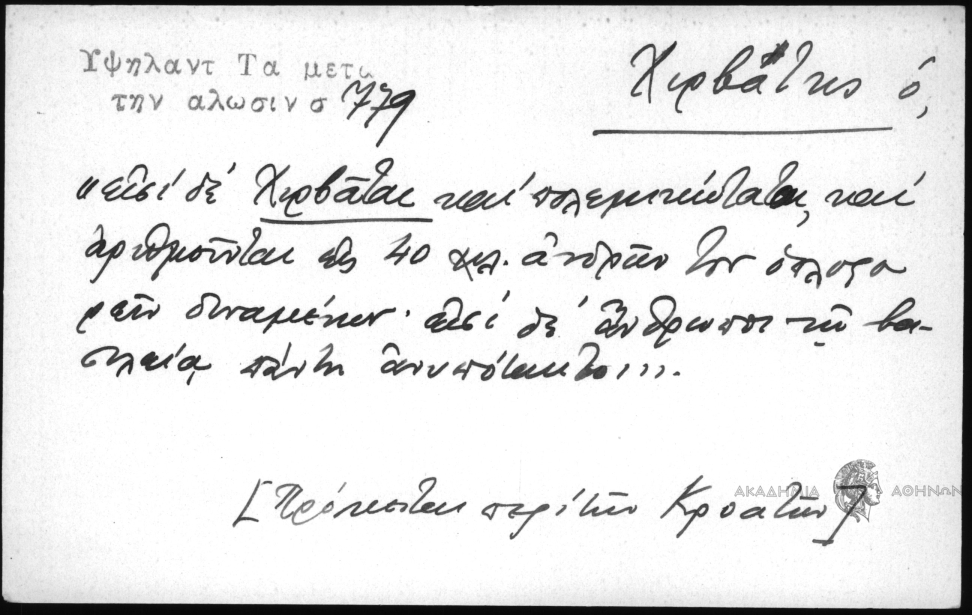 Υψηλαντ Τα μετα
την αλωσιν σ 779
Χιρβᾶτης ὁ,
"εἰσί δέ Χιρβᾶται καί πολεμικώτατοι, καί
ἀριθμοῦνται εἰς 40 χιλ. ἀνδρῶν των ὁπλοφο
ρεῖν δυναμένων· εἰσί δέ ἄνθρωποι τῇ βα-
σιλείᾳ πάντη ἀνυπότακτοι...
[Πρόκειται περί τῶν Κροατῶν]
ΑΚΑΔΗΜΙΑ ΑΘΗΝΩΝ